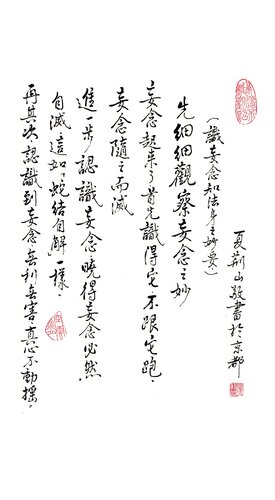 夏荊山敬書於京都
(識妄念知法身之妙要)
先細細觀察妄念之妙
妄念起來了首先識得它、不跟它跑、
妄念隨之而滅
進一步認識妄念曉得妄念必然
自滅、這如「蛇結自解」一樣、
再其次、認識到妄念無利無害、真心不動搖。